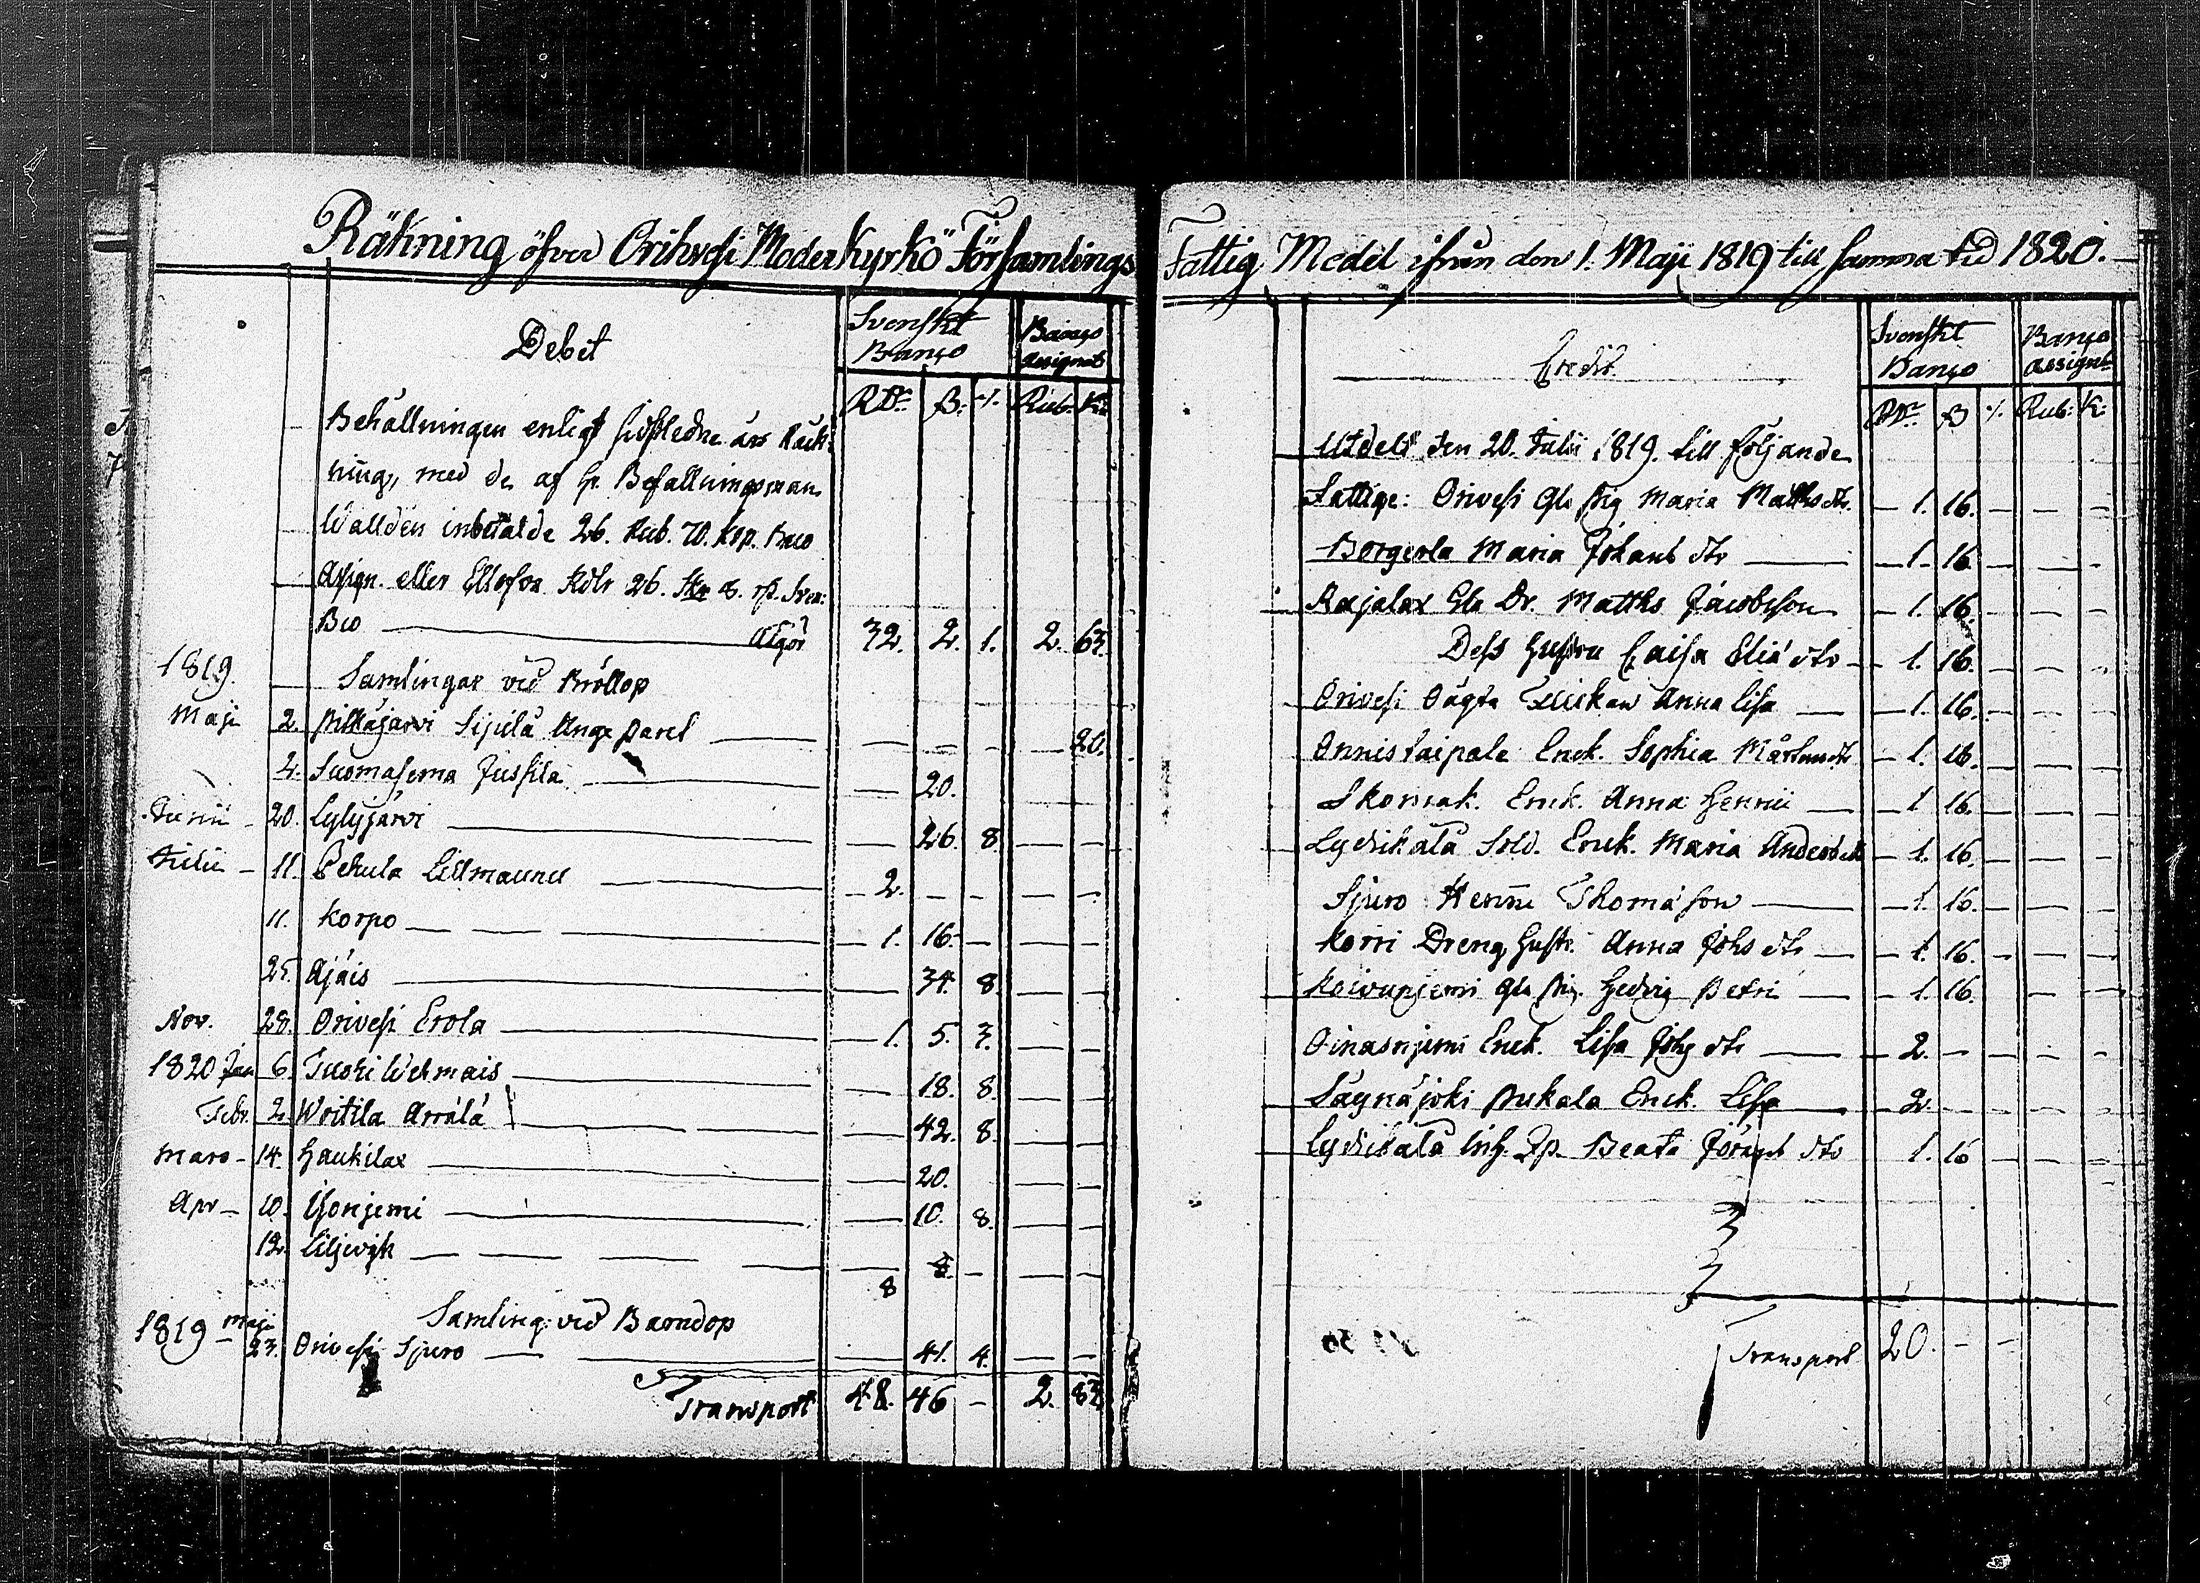 Räkning öfver Orihvesi Moderkyrko Församlings Fattig Medel ifrån den 1. Maji 1819 till samma tid 1820.
Debet
Svenskt Banço
Banço assignat
RDr. ß. rf. Rub. K.
Behållningen enligt sidstledne års Räk-
ning, med de af Hr Befallningsman
Wallden inbetalde 26. Rub. 70. Kop. Bco
Assign. eller Ellofva Rdlr 26. sk. 8. rf. Sven:
Bco — Utgör 32. 2. 1. 2. 63.
1819. Samlingar vid Bröllop
Maji 2. Pitkäjärvi Sipilä Unge Paret — — — — 20.
4. Suomasema Jussila — 20.
Junii – 20. Lylyjärvi — 26. 8 — —
Julii – 11. Pehula Lillmaunu — 2. — — — —
11. Korpo — 1. 16. — — —
25. Ajáis — 34. 8. — —
Nov. 28. Orivesi Erola — 1. 5. 3. — —
1820 Jan 6. Tuori Wehmais — 18. 8. — —
Febr. 2. Woitila Arrálá — 42. 8. — —
Mars – 14. Haukilax — 20. — —
Apr – 10. Isonjemi — 10. 8. — —
12. Liljevijk — 8 — — —
8
Samling: vid Barndop
1819 – Maji 23. Orivesi Sjuro — 41. 4. — —
Transport 48. 46 – 2. 83
Credit
Svenskt Banço
Banço assignat
RDr. ß rf. Rub: K:
Utdelt den 20. Julii 1819. till följande
Fattige: Orivesi gla pig Maria Matts dtr. — 1. 16. — — —
Borgerla Maria Johans dtr — 1. 16 — — —
Rajalax Gla Dr. Matths Jacobsson — 1. 16. — — —
Dess Hustru Caisa Eliæ dtr — 1. 16. — — —
Orivesi Anna Lisa — 1. 16. — — —
Onnistaipale Enck. Sophia Mårtens dtr — 1. 16. — — —
Skomak. Enck. Anna Henrici — 1 16. — — —
Lydikälä Sold. Enck. Maria Anders dtr — 1. 16. — — —
Sjuro Henric Thomæson — 1. 16. — — —
Korri Dreng Hustr. Anna Johs dtr — 1. 16. — — —
Koivunjemi gla Pig. Hedvig Petri — 1. 16. — — —
Oinasnjemi Enck. Lisa Johs dtr — 2. — — — —
Säynäjoki Pukala Enck. Lisa — 2. — — — —
Lydikälä Inh. Beata Jörans dtr 1. 16 — — —
Transport 20. — —